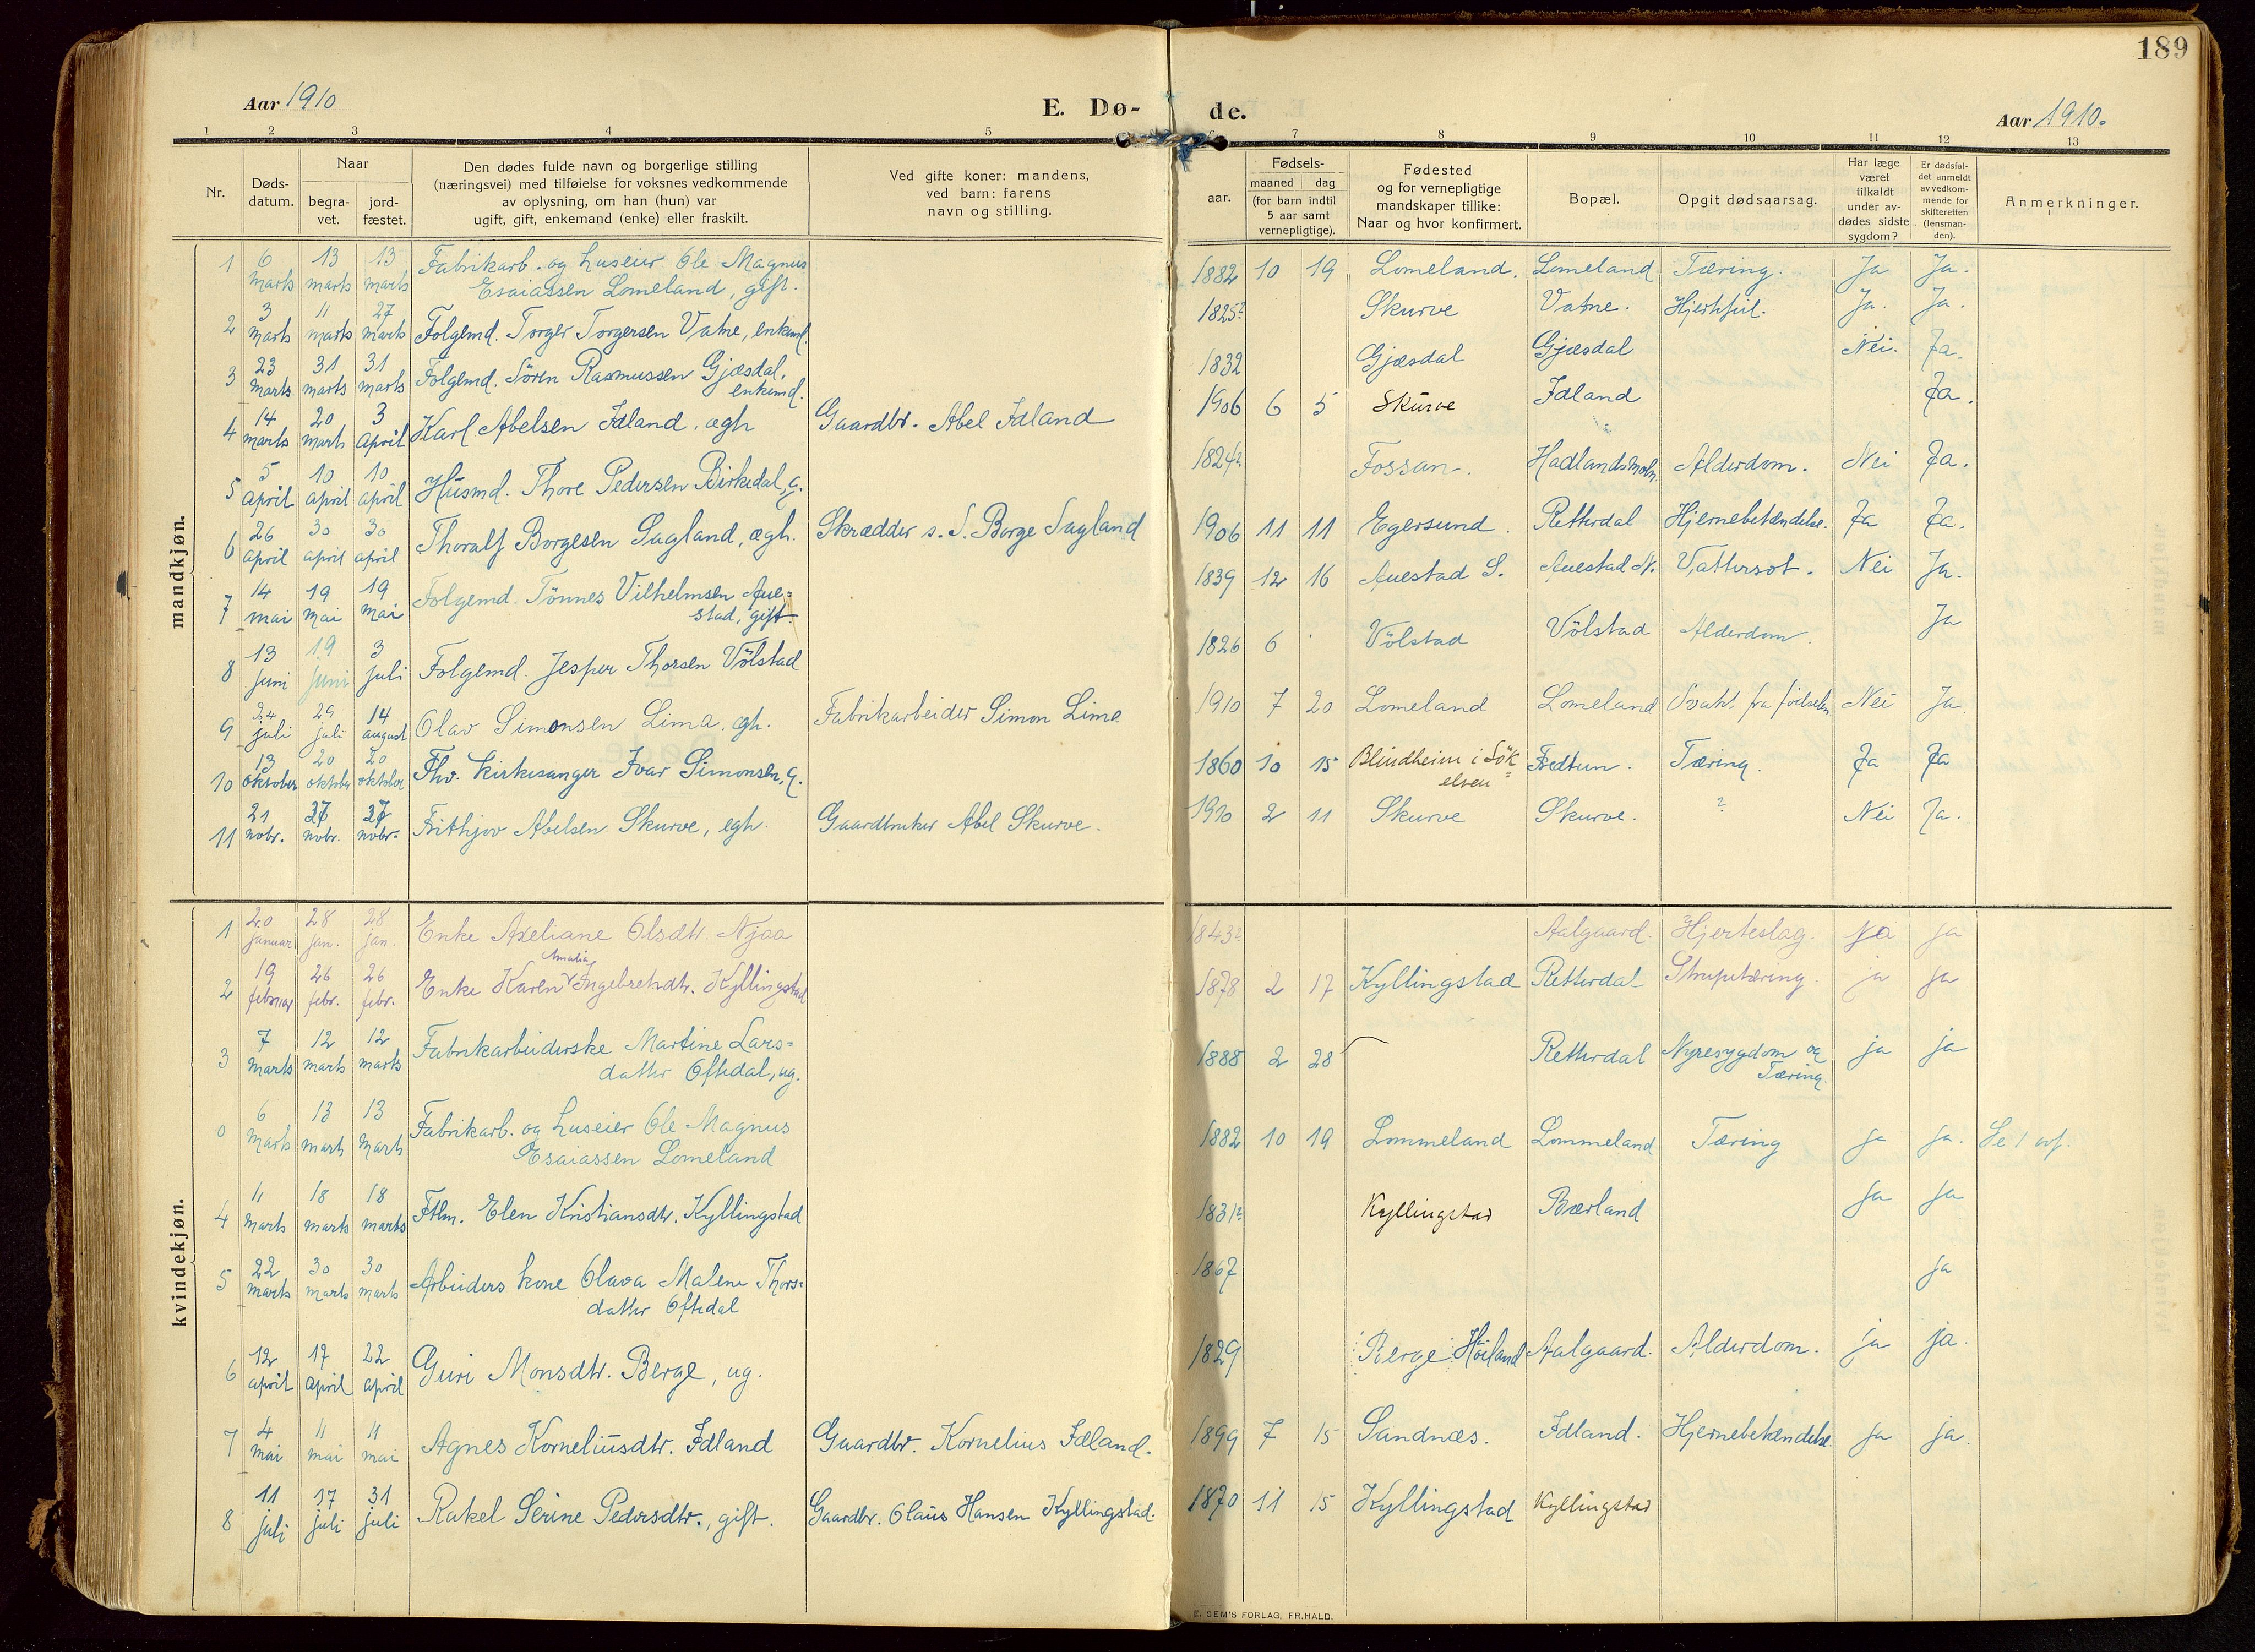 189
Aar 1910
E. Dø-
de.
Aar 1910.
1 2 3 4 5 6 7 8 9 10 11 12 13
Nr.
Døds-
datum.
Naar
begra-
vet.
jord-
fæstet.
Den dødes fulde navn og borgerlige stilling
(næringsvei) med tilføielse for voksnes vedkommende
av oplysning, om han (hun) var
ugift, gift, enkemand (enke) eller fraskilt.
Ved gifte koner: mandens,
ved barn: farens
navn og stilling.
Fødsels-
aar.
maaned
dag
(for barn indtil
5 aar samt
vernepligtige).
Fødested
og for vernepligtige
mandskaper tillike:
Naar og hvor konfirmert.
Bopæl.
Opgit dødsaarsag.
Har læge
været
tilkaldt
under av-
dødes sidste
sygdom?
Er dødsfal-
det anmeldt
av vedkom-
mende for
skifteretten
(lensman-
den).
Anmerkninger.
mandkjøn.
1 6 marts 13 marts 13 marts Fabrikarb. og huseier Ole Magnus
Esaiassen Lomeland, gift. 1882 10 19 Lomeland. Lomeland Tæring. Ja Ja.
2 3 marts 11 marts 27 marts Folgemd. Torger Torgersen Vatne, enkemd. 1825? Skurve Vatne. Hjertefeil. Ja. Ja.
3 23 marts 31 marts 31 marts Folgemd. Sören Rasmussen Gjæsdal,
enkemd. 1832 Gjæsdal Gjæsdal Nei. Ja.
4 14 marts 20 marts 3 april Karl Abelsen Idland, ægh Gaardbr. Abel Idland 1906 6 5 Skurve Idland Ja.
5 5 april 10 april 10 april Husmd. Thore Pedersen Birkedal, g. 1824? Fossan. Hadlandsholm Alderdom. Nei Ja.
6 26 april 30 april 30 april Thoralf Borgesen Sagland, ægh. Skrædder s. S. Borge Sagland 1906 11 11 Egersund. Retterdal Hjernebetændelse. Ja Ja.
7 14 mai 19 mai 19 mai Folgemd. Tönnes Vilhelmsen Aue=
stad, gift. 1839 12 16 Auestad S. Auestad N. Vattersot. Nei Ja.
8 13 juni 19 juni 3 juli Folgemd. Jesper Thorsen Völstad 1826 6 Völstad Völstad Alderdom. Ja
9 24 juli 29 juli 14 august Olav Simonsen Lima, ægh. Fabrikarbeider Simon Lima 1910 7 20 Lomeland Lomeland Svakh. fra fødselen Nei Ja
10 13 oktober 20 oktober 20 oktober Fhv. kirkesanger Ivar Simonsen, g. 1860 10 15 Blindheim i Sök
elven Fredtun. Tæring. Ja Ja
11 21 nobr. 27 nobr. 27 nobr. Frithjov Abelsen Skurve, egh. Gaardbruker Abel Skurve. 1910 2 11 Skurve Skurve. ? Nei Ja.
kvindekjøn.
1 20 januar 28 jan. 28 jan. Enke Axeliane Olsdtr. Njaa 1843? Aalgaard. Hjerteslag. ja ja
Amalia
2 19 februar 26 febr. 26 febr. Enke Karen Ingebretsdtr. Kyllingstad 1878 2 17 Kyllingstad Retterdal Strupetæring. ja ja
3 7 marts 12 marts 12 marts Fabrikarbeiderske Martine Lars=
datter Oftedal, ug. 1888 2 28 Retterdal Nyresygdom og
Tæring. ja ja
0 6 marts 13 marts 13 marts Fabrikarb. og huseier Ole Magnus
Esaiassen Lomeland 1882 10 19 Lommeland Lommeland Tæring ja ja. Se 1 ovf.
4 11 marts 18 marts 18 marts Ftlm. Elen Kristiansdtr. Kyllingstad 1831? Kyllingstad Bærland ja ja
5 22 marts 30 marts 30 marts Arbeiders kone Olava Malene Thors=
datter Oftedal 1867 ja
6 12 april 17 april 22 april Guri Monsdtr. Berge, ug. 1829 Berge Høiland Aalgaard. Alderdom. ja ja.
7 4 mai 11 mai 11 mai Agnes Korneliusdtr. Idland Gaardbr. Kornelius Idland. 1899 7 15 Sandnæs. Idland. Hjernebetændelse. ja ja.
8 11 juli 17 juli 31 juli Rakel Serine Pedersdtr., gift. Gaardbr. Olaus Hansen Kyllingstad. 1870 11 15 Kyllingstad Kyllingstad
E. SEM'S FORLAG, FR.HALD.